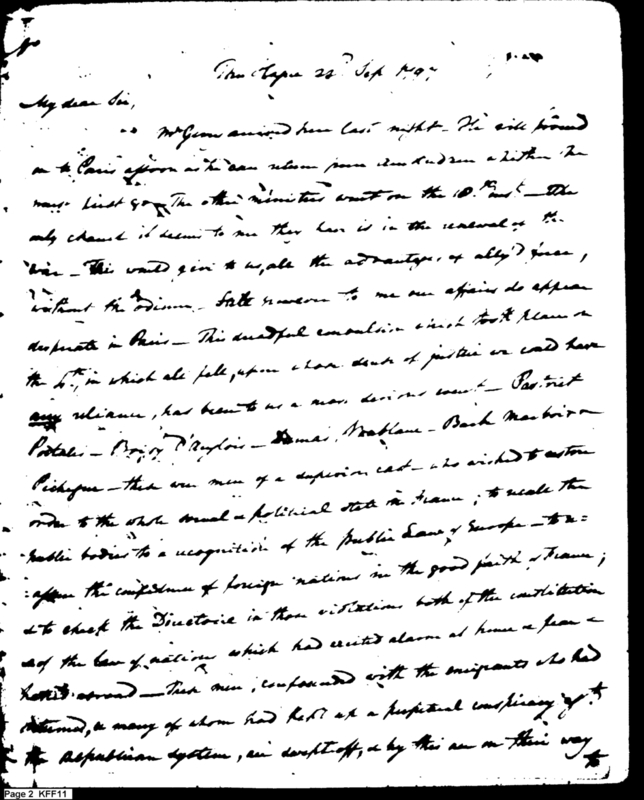 The Hague 22d Sep 1797
My dear Sir,
Mr Gerry arrived here last night. He will proceed
on to Paris as soon as he can
must first go. The other ministers went on the 18th inst. — the
only chance it seems to me they have is in the renewal of the
war — This would give to us, all the advantages of ally'd force,
without the odium — Little however to me our affairs do appear
desperate in Paris — This dreadful convulsion which took place on
the 4th, in which all fell, upon whose sense of justice we could have
any reliance, has been to us a most serious event — Pastoret
Portalis — Boissy D'Anglois — Dumas, Vaublanc — Barbé Marbois &
Pichegru — these were men of a superior cast — who wished to restore
order to the whole social & political state in France; to recall the
public bodies to a recognition of the public Law of Europe — to re=
the confidence of foreign nations in the good faith of France;
& to check the Directoire in those violations both of the constitution
& of the law of nations which had excited alarm at home & fear &
hatred abroad — These men, confounded with the emigrants who had
returned, & many of whom had kept up a perpetual conspiracy agt
the republican system, are swept off, & by this are on their way
to
Page 2 KFF11